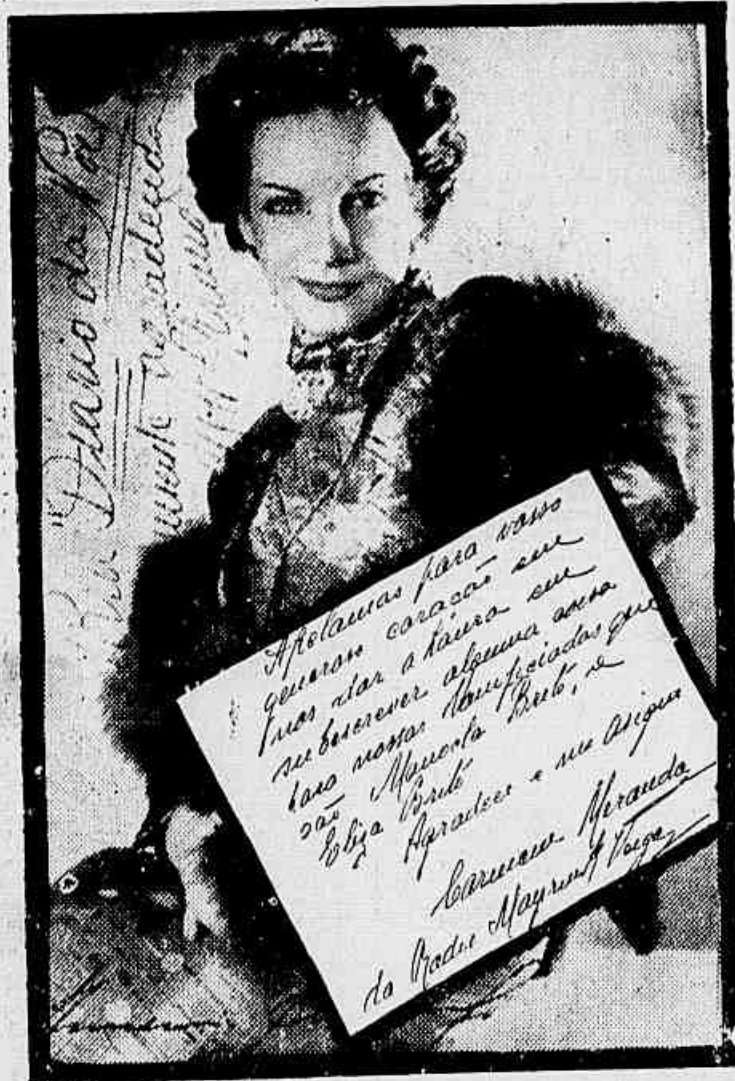 "Diario da
agradecida
Apelamos para vosso
generoso coração em
nos dar a honra em
subescrever alguma cousa
para nossas beneficiadas que
são Manoela Brito, e
Eliza Brito
Agradece e me asigna
Carmem Miranda
da Radio Mayrink Veiga